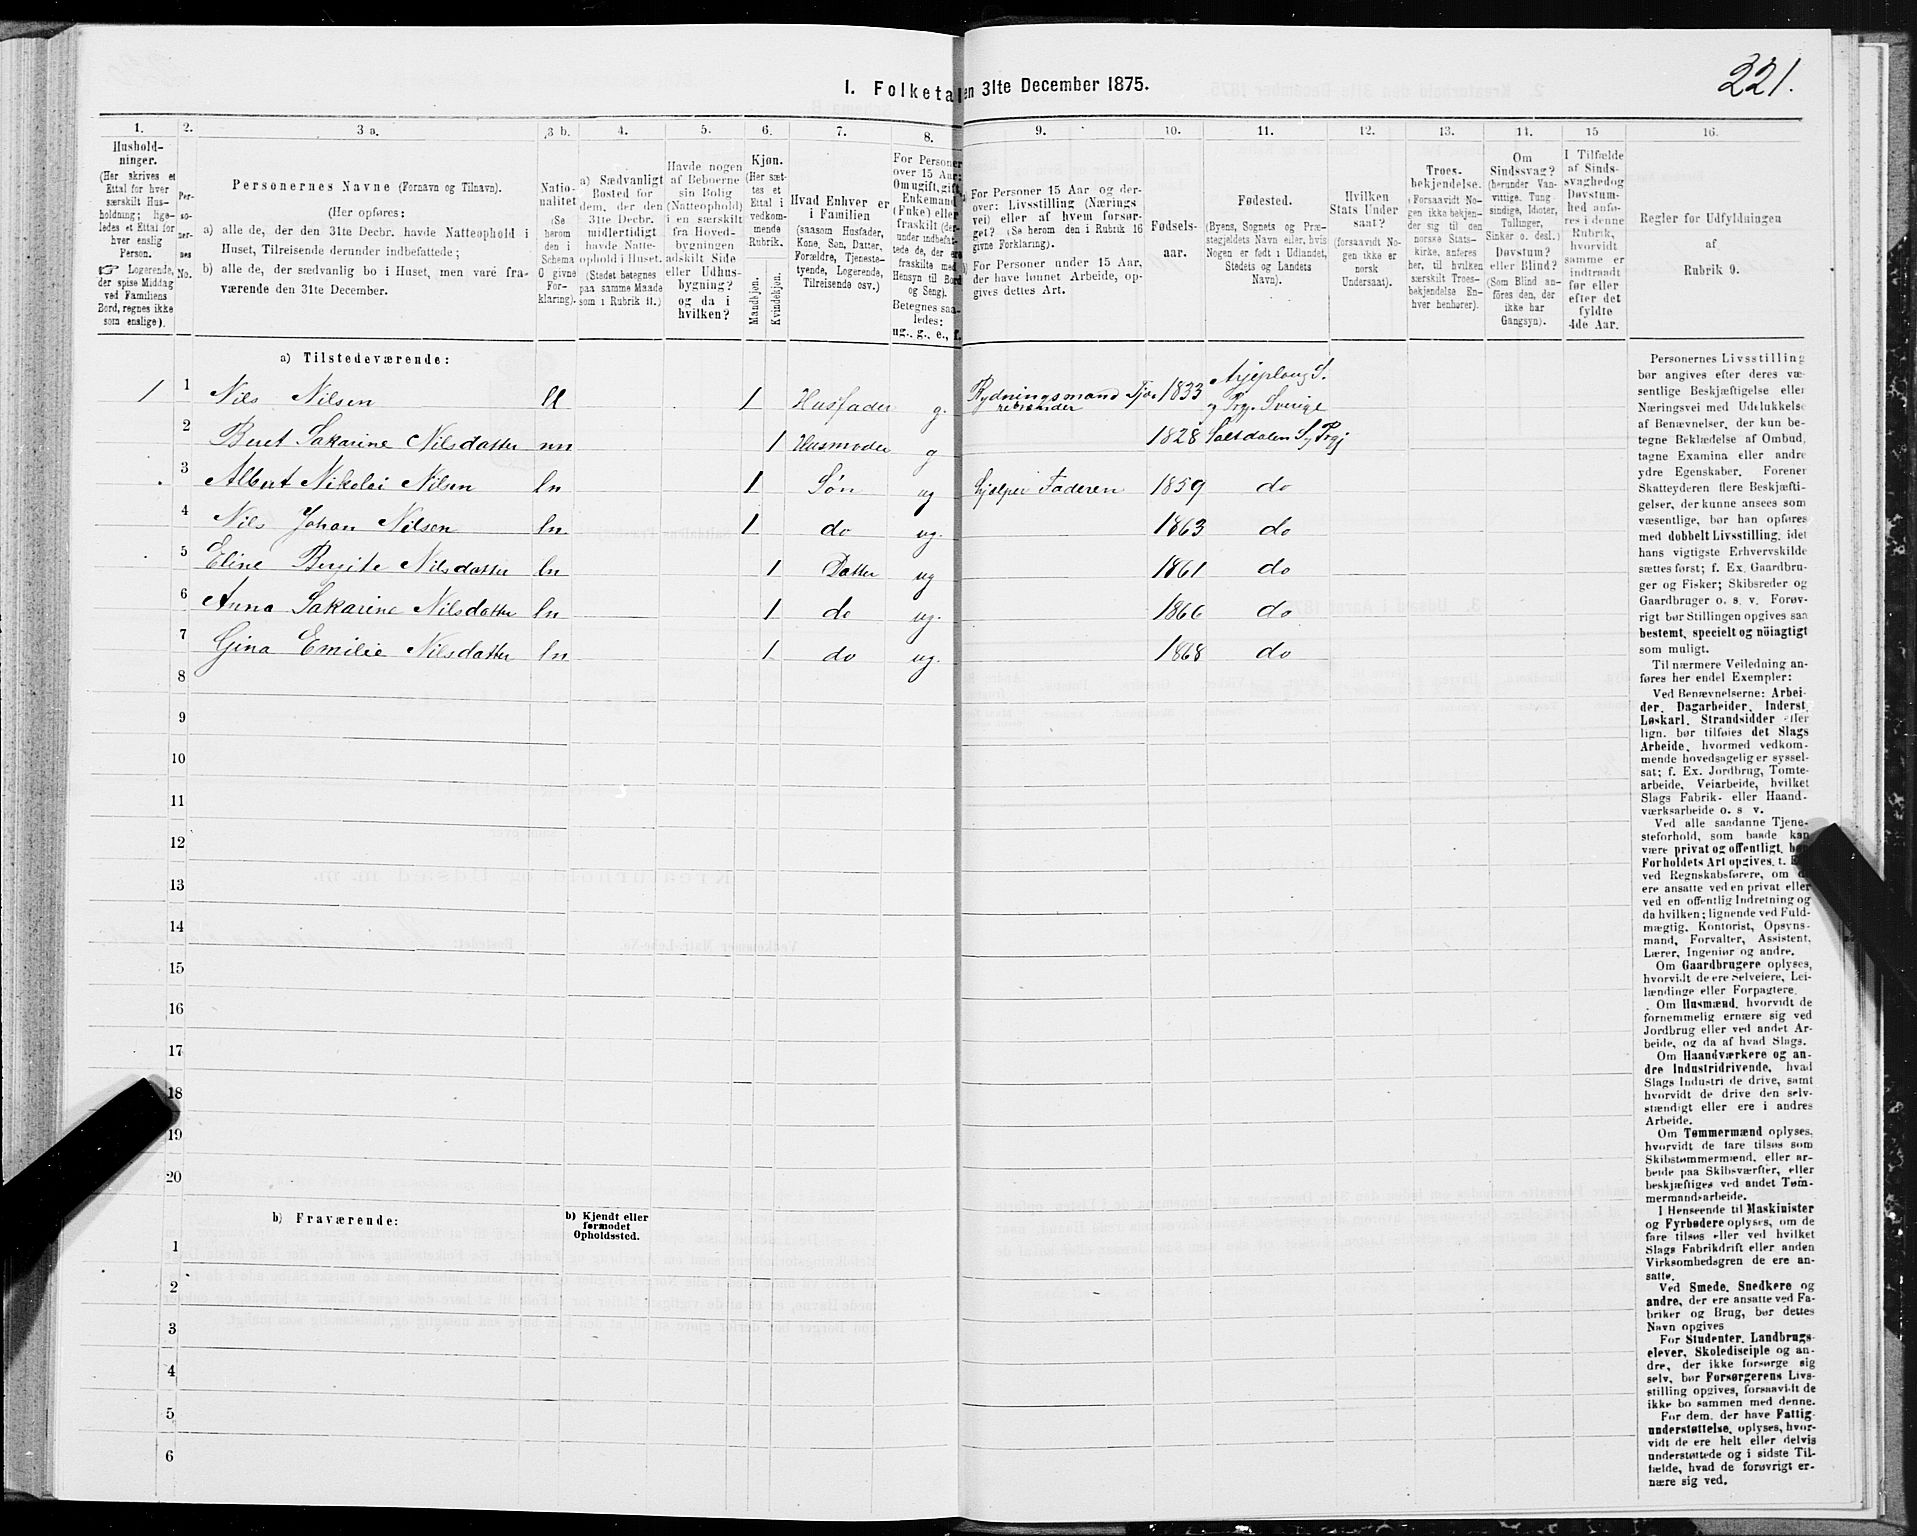 221.
I. Folketal den 31te December 1875.
1. 2. 3 a. 3 b. 4. 5. 6. 7. 8. 9. 10. 11. 12. 13. 14. 15 16.
Hushold-
ninger.
(Her skrives et
Ettal for hver
særskilt Hus-
holdning; lige-
ledes et Ettal for
hver enslig
Person.
☞ Logerende,
der spise Middag
ved Familiens
Bord, regnes ikke
som enslige).
Per-
so-
ner-
nes
No.
Personernes Navne (Fornavn og Tilnavn).
(Her opføres:
a) alle de, der den 31te Decbr. havde Natteophold i
Huset, Tilreisende derunder indbefattede;
b) alle de, der sædvanlig bo i Huset, men vare fra-
værende den 31te December.
Natio-
nalitet
(Se
herom
den i
Schema
O givne
For-
klaring).
a) Sædvanligt
Bosted for
dem, der den
31te Decbr.
midlertidigt
havde Natte-
ophold i Huset.
(Stedet betegnes
paa samme Maade
som i Rubrik 11.)
Havde nogen
af Beboerne
sin Bolig
(Natteophold)
i en særskilt
fra Hoved-
bygningen
adskilt Side
eller Udhus-
bygning?
og da i
hvilken?
Kjøn.
(Her sæt-
tes et
Ettal i
vedkom-
mende
Rubrik.
Mandkjøn.
Kvindekjøn.
Hvad Enhver er
i Familien
(saasom Husfader,
Kone, Søn, Datter,
Forældre, Tjeneste-
tyende, Logerende,
Tilreisende osv.)
For Personer
over 15 Aar:
Om ugift, gift,
Enkemand
(Enke) eller
fraskilt (der-
under indbefat-
tede de, der ere
fraskilte med
Hensyn til Bord
og Seng).
Betegnes saa-
ledes:
ug., g., e., f.
a) For Personer 15 Aar og der-
over: Livsstilling (Nærings
vei) eller af hvem forsør-
get? (Se herom den i Rubrik 16
givne Forklaring).
b) For Personer under 15 Aar,
der have lønnet Arbeide, op-
gives dettes Art.
Fødsels-
aar.
Fødested.
(Byens, Sognets og Præ-
stegjeldets Navn eller, hvis
Nogen er født i Udlandet,
Stedets og Landets
Navn).
Hvilken
Stats Under
saat?
(forsaavidt No-
gen ikke er
norsk
Undersaat).
Troes-
bekjendelse.
(Forsaavidt No-
gen ikke bekjen-
der sig til den
norske Stats-
kirke, anføres
her, til hvilken
særskilt Troes-
bekjendelse En-
hver henhører).
Om
Sindssvag?
(herunder Van-
vittige, Tung-
sindige, Idioter,
Tullinger,
Sinker o. desl.)
Døvstum?
eller Blind?
(Som Blind an-
føres den, der
ikke har
Gangsyn).
I Tilfælde
af Sinds-
svaghed og
Døvstum-
hed anfø-
res i denne
Rubrik,
hvorvidt
samme er
indtraadt
før eller
efter det
fyldte
4de Aar.
Regler for Udfyldningen
af
Rubrik 9.
a) Tilstedeværende:
1 1 Nils Nilsen ll 1 Husfader g. Rydningsmand Tjæ- rebrænder 1833 Arjeplaug S.
og Prg. Sverige
2 Beret Sakarine Nilsdatter nn 1 Husmoder g 1828 Saltdalen S og Prgj
3 Albert Nikolai Nilsen ln 1 Søn ug hjælper Faderen 1859 do
4 Nils Johan Nilsen ln 1 do ug. 1863 do
5 Eline Bergite Nilsdatter ln 1 Datter ug 1861 do
6 Anna Sakarine Nilsdatter ln 1 do ug. 1866 do
7 Gina Emilie Nilsdatter ln 1 do ug. 1868 do
8
9
10
11
12
13
14
15
16
17
18
19
20
b) Fraværende:
b) Kjendt eller
formodet
Opholdssted.
1
2
3
4
5
6
Personernes Livsstilling
bør angives efter deres væ-
sentlige Beskjæftigelse eller
Næringsvei med Udelukkelse
af Benævnelser, der kun be-
tegne Beklædelse af Ombud,
tagne Examina eller andre
ydre Egenskaber. Forener
Skatteyderen flere Beskjæfti-
gelser, der kunne ansees som
væsentlige, bør han opføres
med dobbelt Livsstilling, idet
hans vigtigste Erhvervskilde
sættes først; f. Ex. Gaardbru-
ger og Fisker; Skibsreder og
Gaardbruger o. s. v. Forøv-
rigt bør Stillingen opgives saa
bestemt, specielt og nøiagtigt
som muligt.
Til nærmere Veiledning an-
føres her endel Exempler:
Ved Benævnelserne: Arbei-
der, Dagarbeider, Inderst,
Løskarl, Strandsidder eller
lign. bør tilføies det Slags
Arbeide, hvormed vedkom-
mende hovedsagelig er syssel-
sat; f. Ex. Jordbrug, Tomte-
arbeide, Veiarbeide, hvilket
Slags Fabrik- eller Haand-
værksarbeide o. s v.
Ved alle saadanne Tjene-
steforhold, som baade kan
være privat og offentligt, bør
Forholdets Art opgives, t. Ex.
ved Regnskabsførere, om de
ere ansatte ved en privat eller
ved en offentlig Indretning og
da hvilken; lignende ved Fuld-
mægtig, Kontorist, Opsyns-
mand, Forvalter, Assistent,
Lærer, Ingeniør og andre.
Om Gaardbrugere oplyses,
hvorvidt de ere Selveiere, Lei-
lændinge eller Forpagtere.
Om Husmænd, hvorvidt de
fornemmelig ernære sig ved
Jordbrug eller ved andet Ar-
beide, og da af hvad Slags.
Om Haandværkere og an-
dre Industridrivende, hvad
Slags Industri de drive, samt
hvorvidt de drive den selv-
stændigt eller ere i andres
Arbeide.
Om Tømmermænd oplyses,
hvorvidt de fare tilsøs som
Skibstømmermænd, eller ar-
beide paa Skibsværfter, eller
beskjæftiges ved andet Tøm-
mermandsarbeide.
I Henseende til Maskinister
og Fyrbødere oplyses, om de
fare tilsøs eller ved hvilket
Slags Fabrikdrift eller anden
Virksomhedsgren de ere an-
satte.
Ved Smede, Snedkere og
andre, der ere ansatte ved Fa-
briker og Brug, bør dettes
Navn opgives
For Studenter, Landbrugs-
elever, Skoledisciple og an-
dre, der ikke forsørge sig
selv, bør Forsørgerens Livs-
stilling opgives, forsaavidt de
ikke bo sammen med denne.
For dem, der have Fattig-
understøttelse, oplyses, hvor-
vidt de ere helt eller delvis
understøttede og i sidste Til-
fælde, hvad de forøvrigt er-
nære sig ved.